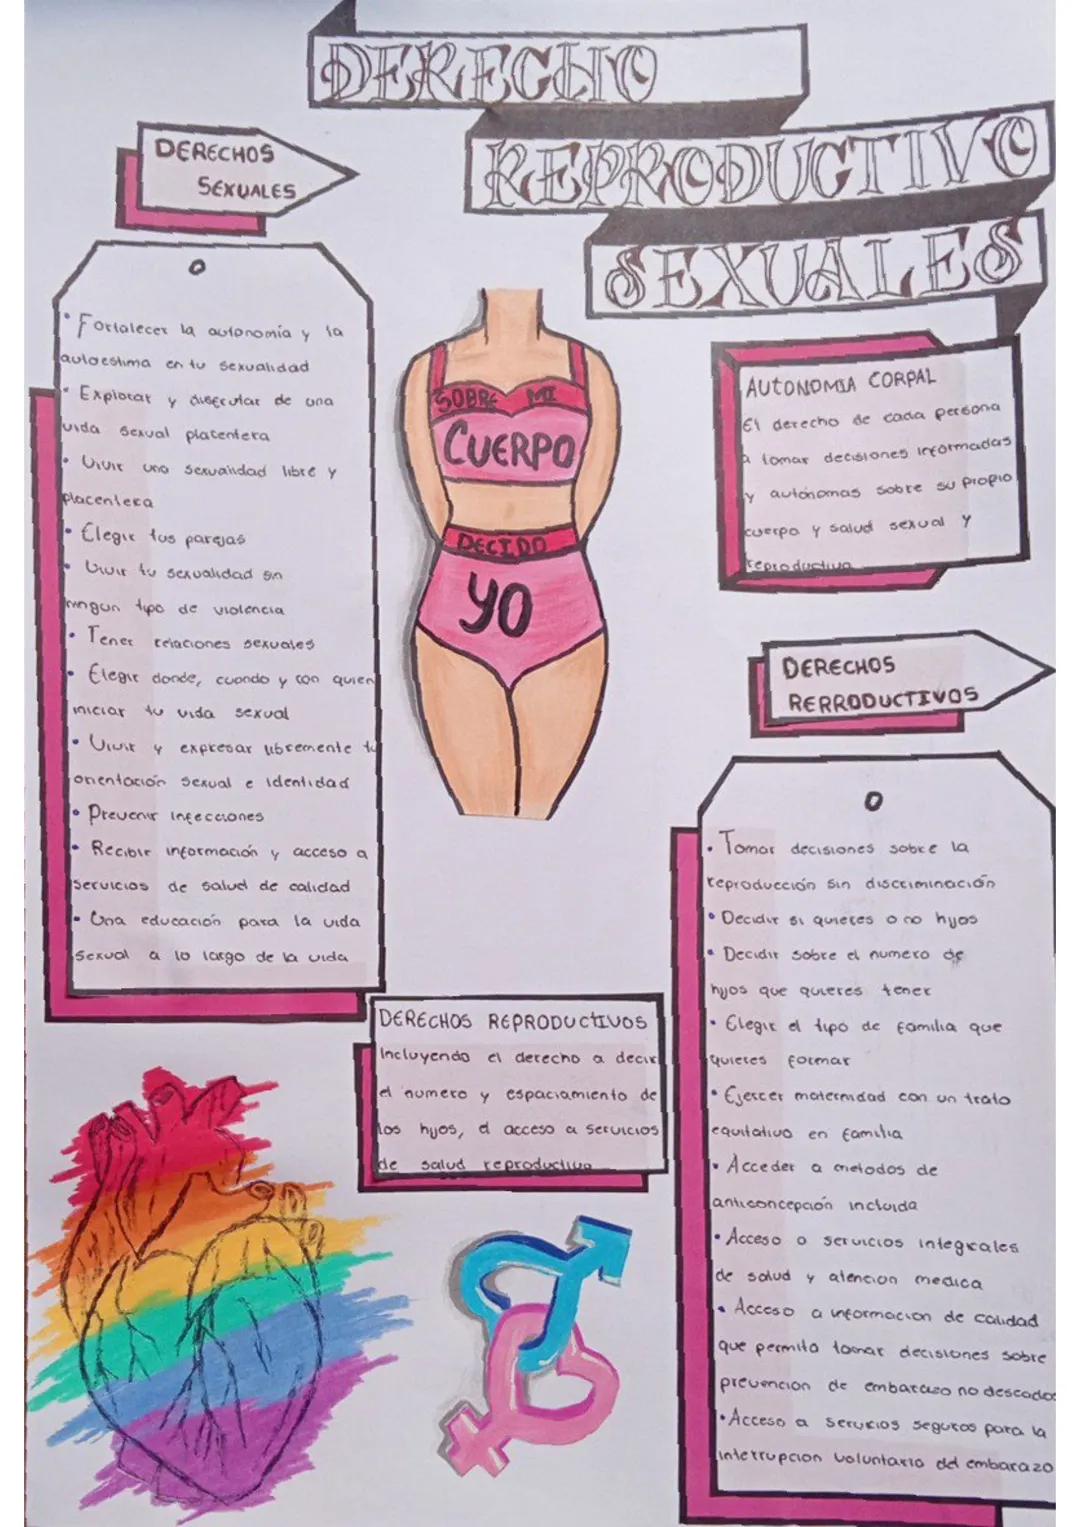 DERECHO
REPRODUCTIVO
SEXUALES
DERECHOS
SEXUALES
• Fortalecer la autonomía y la
autoestima en tu sexualidad
• Explorar y disfrutar de una
vida sexual placentera
• Vivir una sexualidad libre y
placentera
• Elegir tus parejas
• Vivir tu sexualidad sin
ningun tipo de violencia
• Tener relaciones sexuales
• Elegir donde, cuando y con quien
iniciar tu vida sexual
• Vivir y expresar libremente tu
orientación sexual e identidad
• Prevenir infecciones
• Recibir información y acceso a
servicios de salud de calidad
• Una educación para la vida
sexual a lo largo de la vida
SOBRE MI
CUERPO
DECIDO
YO
AUTONOMIA CORPAL
El derecho de cada persona
a tomar decisiones informadas
y autónomas sobre su propio
cuerpo y salud sexual y
reproductiva
DERECHOS
RERRODUCTIVOS
• Tomar decisiones sobre la
reproducción sin discriminación
• Decidir si quieres o no hijos
• Decidir sobre el numero de
hijos que quieres tener
• Elegir el tipo de familia que
quieres formar
• Ejercer maternidad con un trato
equitativo en familia
• Acceder a metodos de
anticoncepción incluida
• Acceso a servicios integrales
de salud y atencion medica
• Acceso a informacion de calidad
que permita tomar decisiones sobre
prevencion de embarazo no descados
• Acceso a servicios seguros para la
interrupcion voluntario del embarazo
DERECHOS REPRODUCTIVOS
Incluyendo el derecho a decir
el numero y espaciamiento de
los hijos, el acceso a servicios
de salud reproductiva